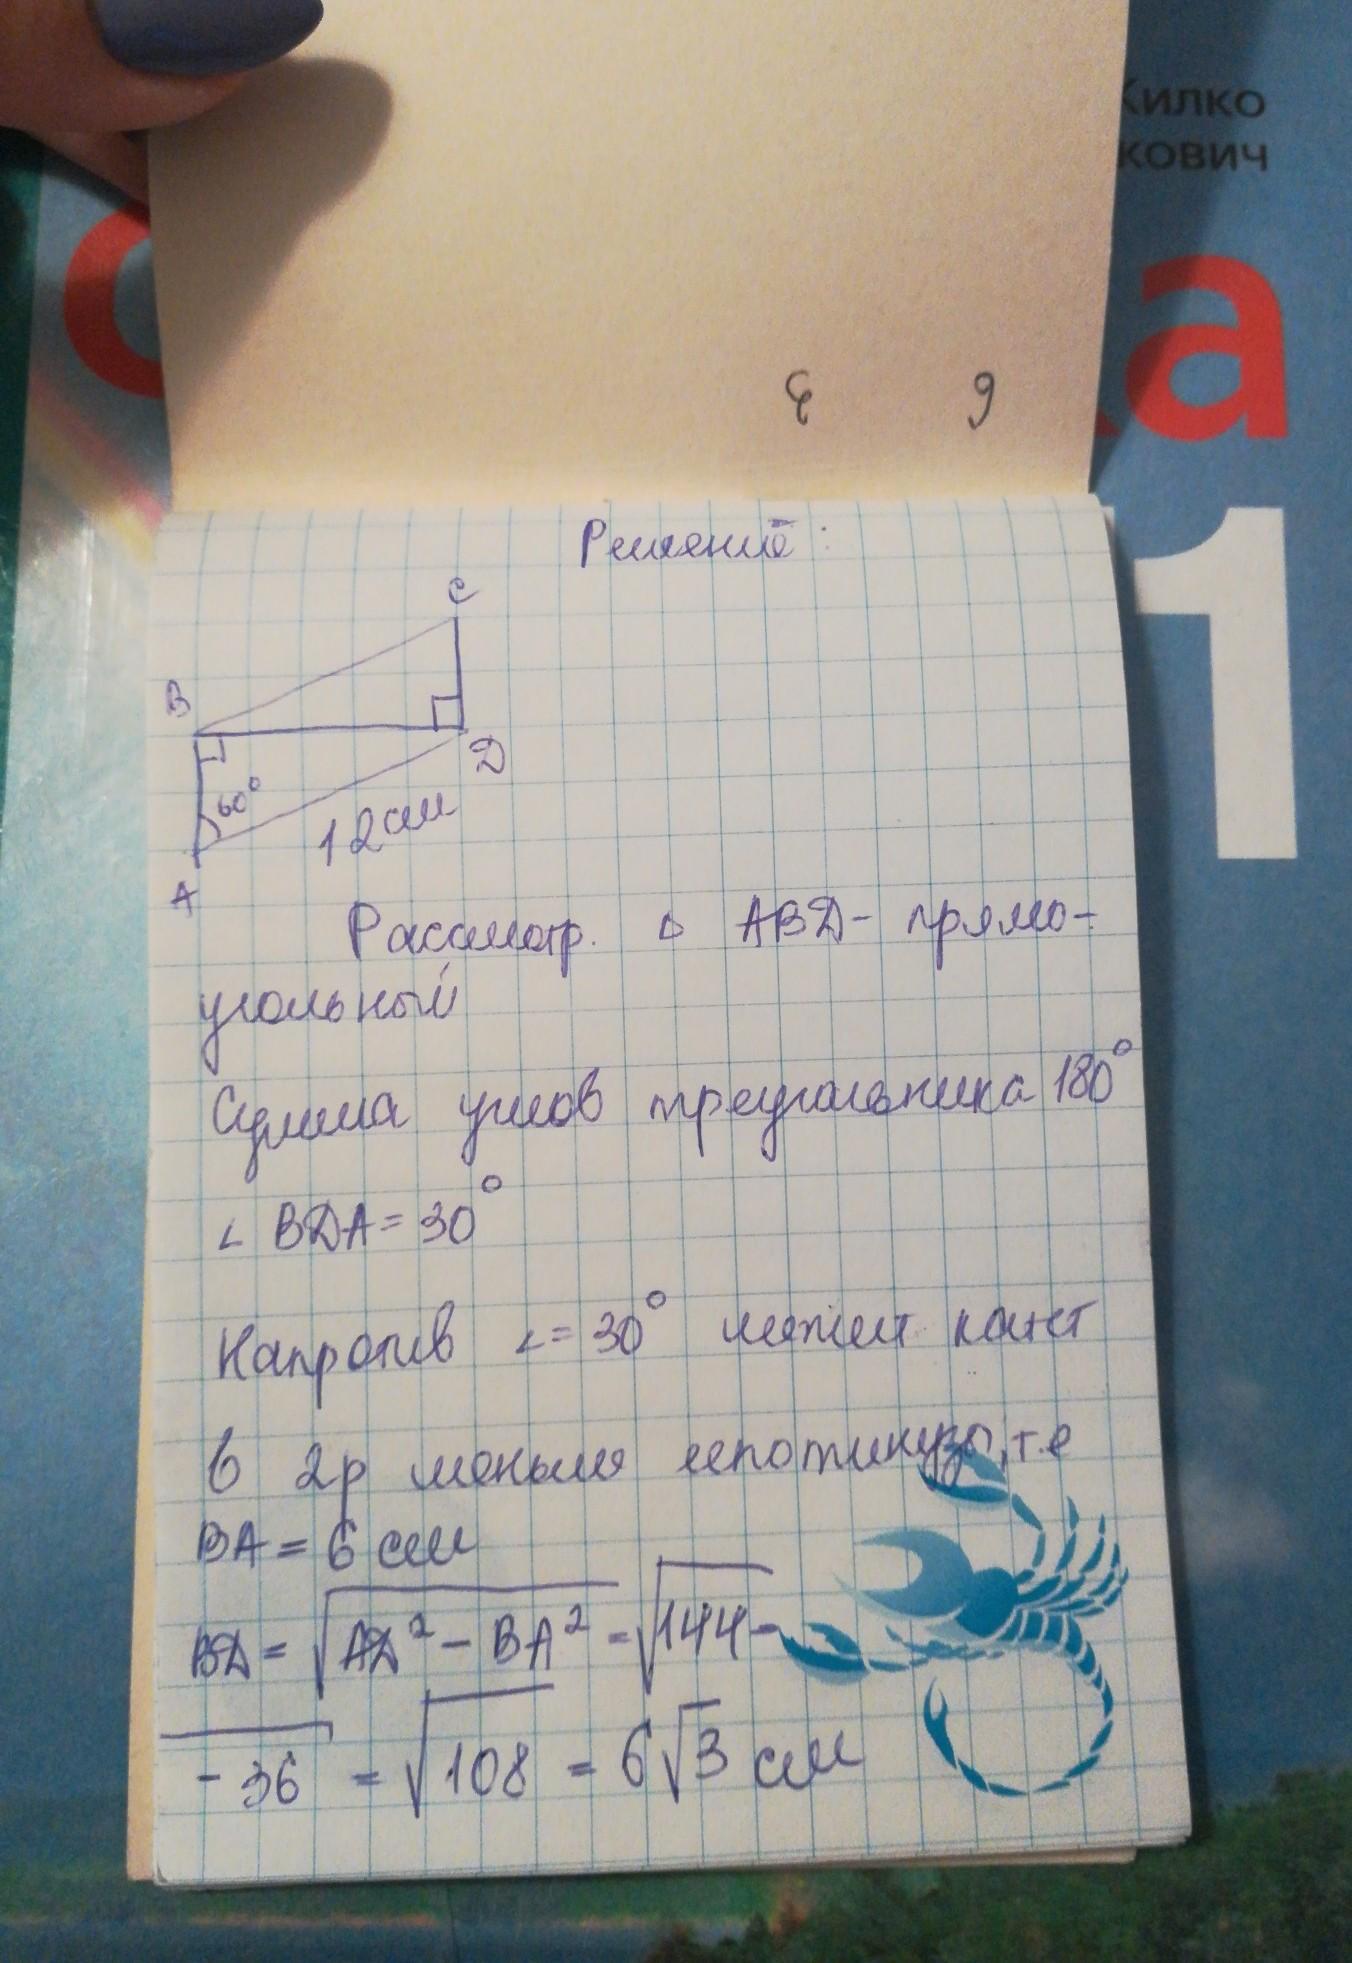 Жилко
кович
ка
11
Решение:
C
B
60°
D
12 см
A
Рассмотр. Δ ABD - прямо-
угольный
Сумма углов треугольника 180°
∠ BDA = 30°
Напротив ∠ = 30° лежит катет
в 2р меньше гипотинузы, т.е
BA = 6 см
BD = √AD² - BA² = √144 -
- 36 = √108 = 6√3 см